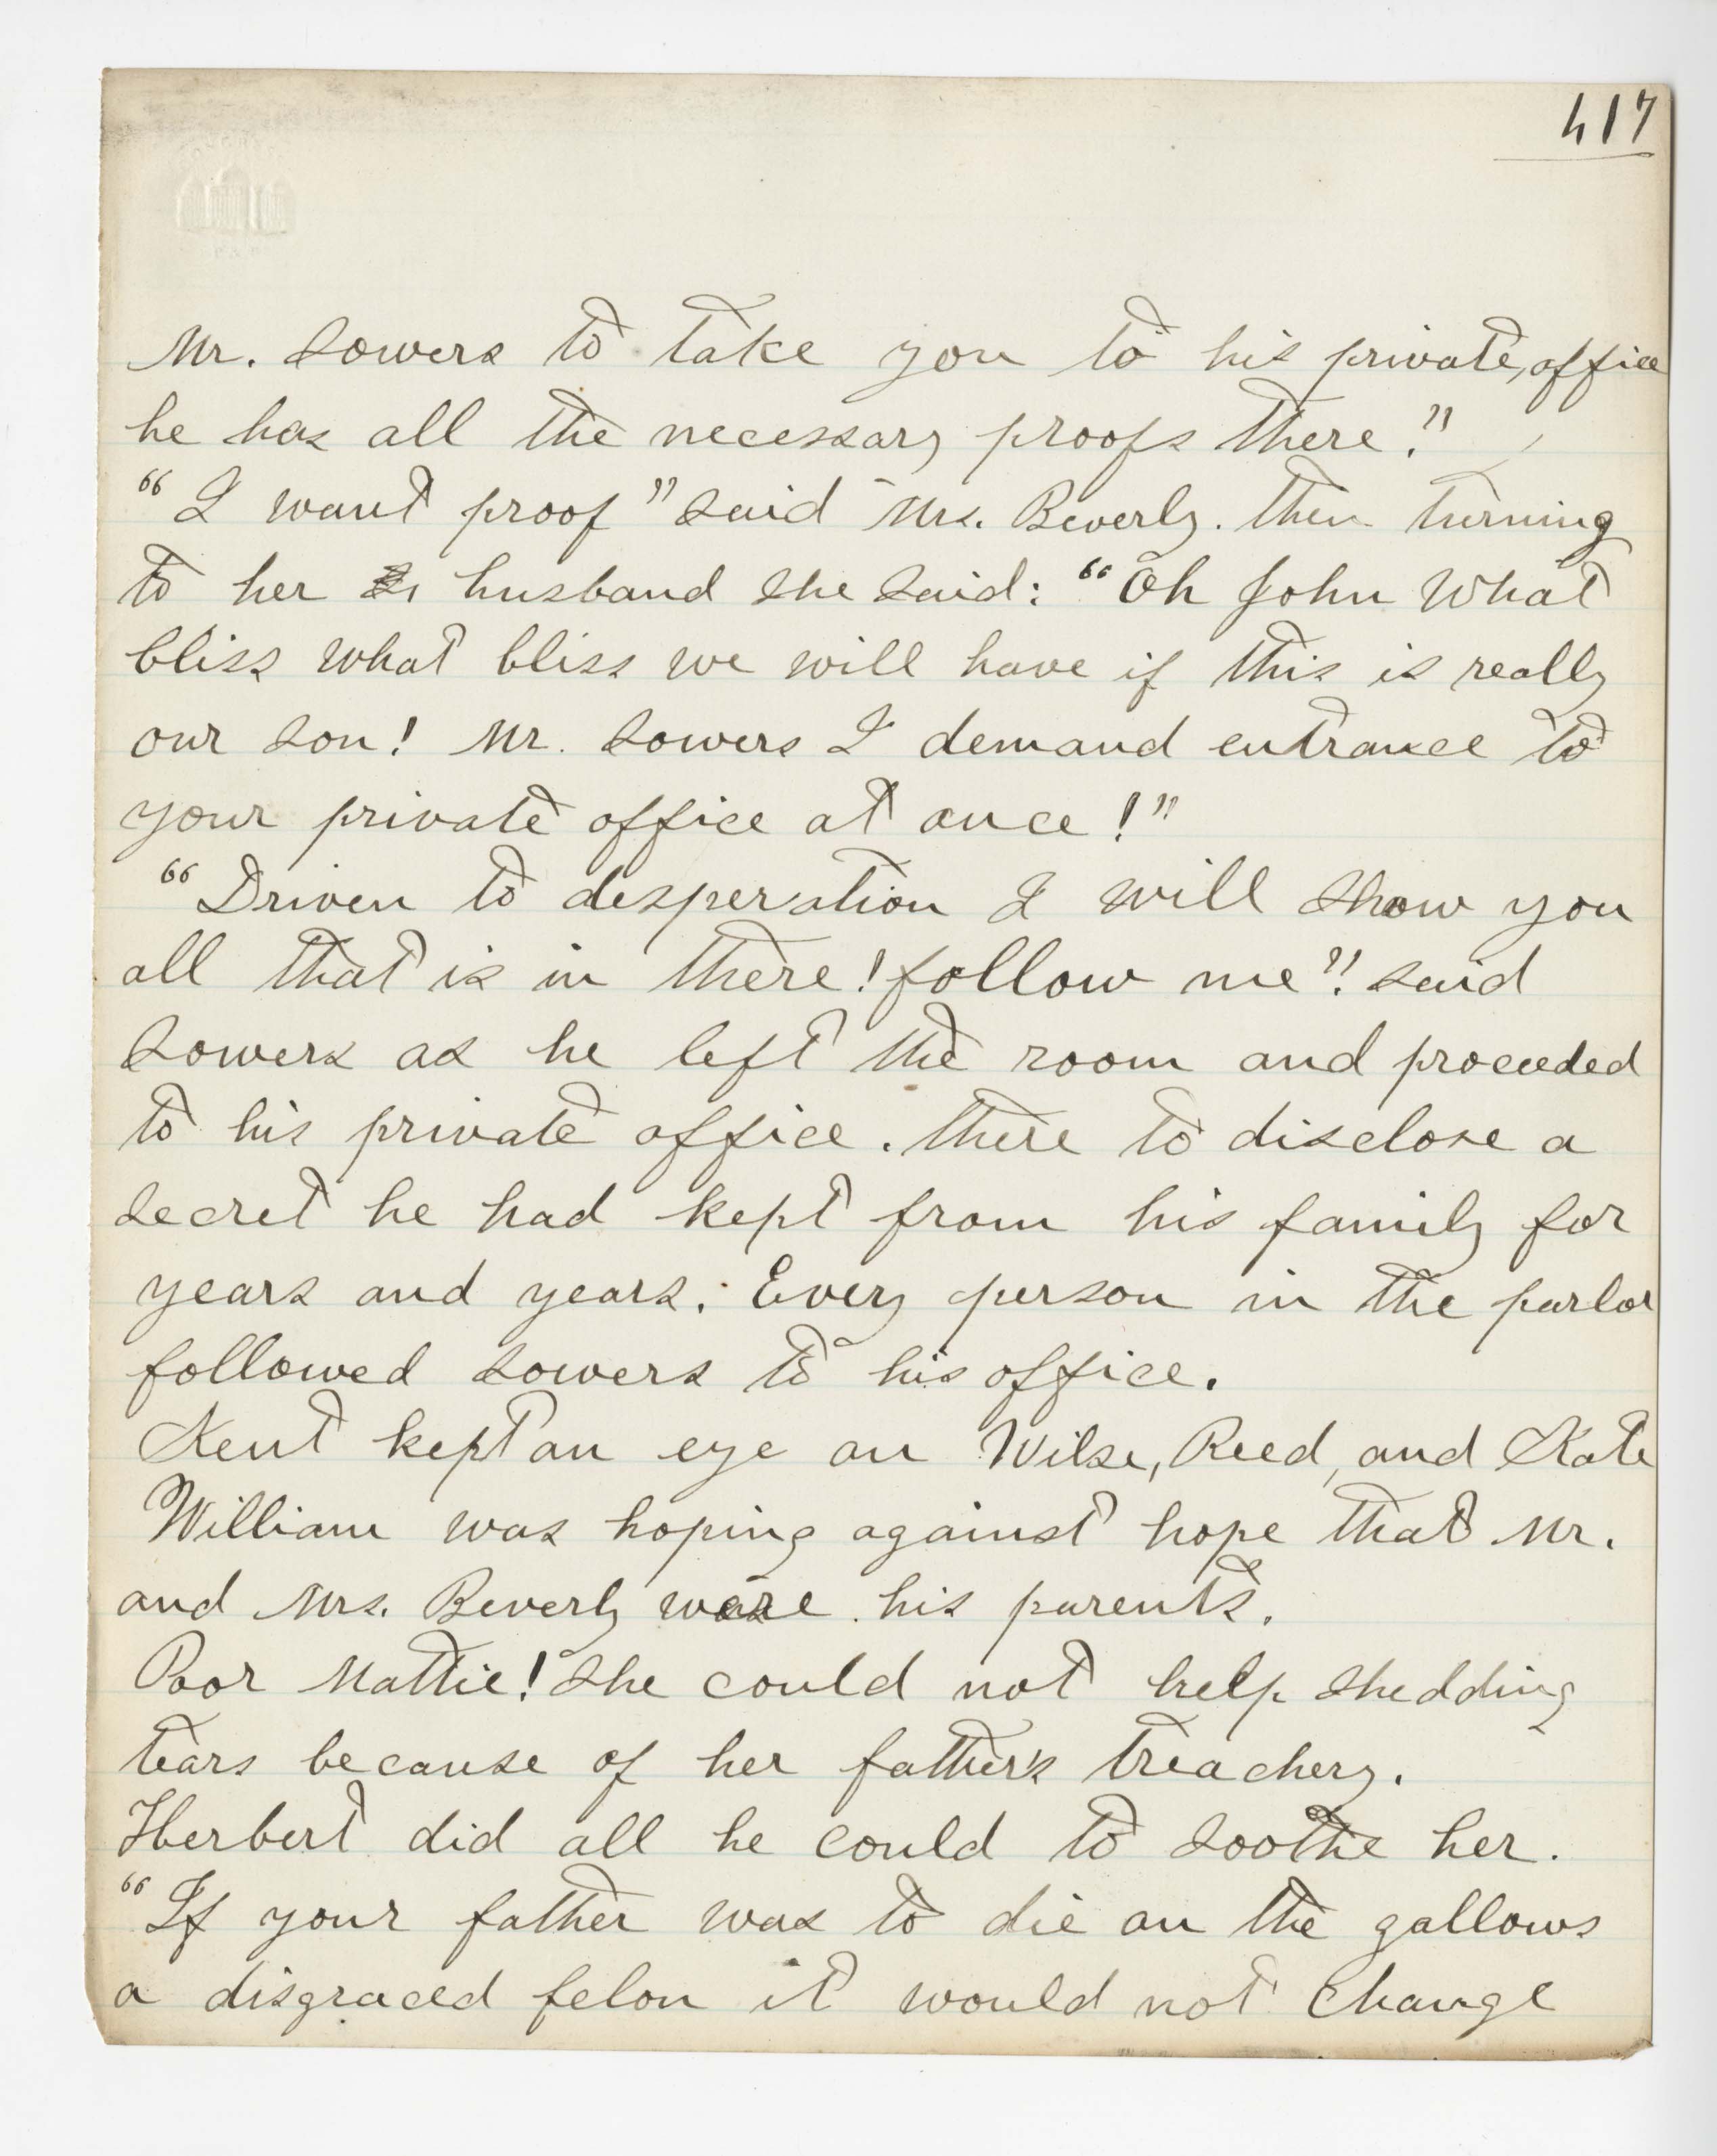 417
Mr. Sowers to take you to his private, office
he has all the necessary proofs there."
"I want proof" said Mrs. Beverly. then turning
to her husband she said: "Oh John What
bliss what bliss we will have if this is really
our son! Mr. Sowers I demand entrance to
your private office at once!"
"Driven to desperation I will show you
all that is in there! follow me". said
Sowers as he left the room and proceeded
to his private office. there to disclose a
secret he had kept from his family for
years and years. Every person in the parlor
followed Sowers to his office.
Kent kept an eye on Wilse, Reed, and Kate
William was hoping against hope that Mr.
and Mrs. Beverly were his parents.
Poor Mattie! She could not help shedding
tears because of her father's treachery.
Herbert did all he could to soothe her.
"If your father was to die on the gallows
a disgraced felon it would not change